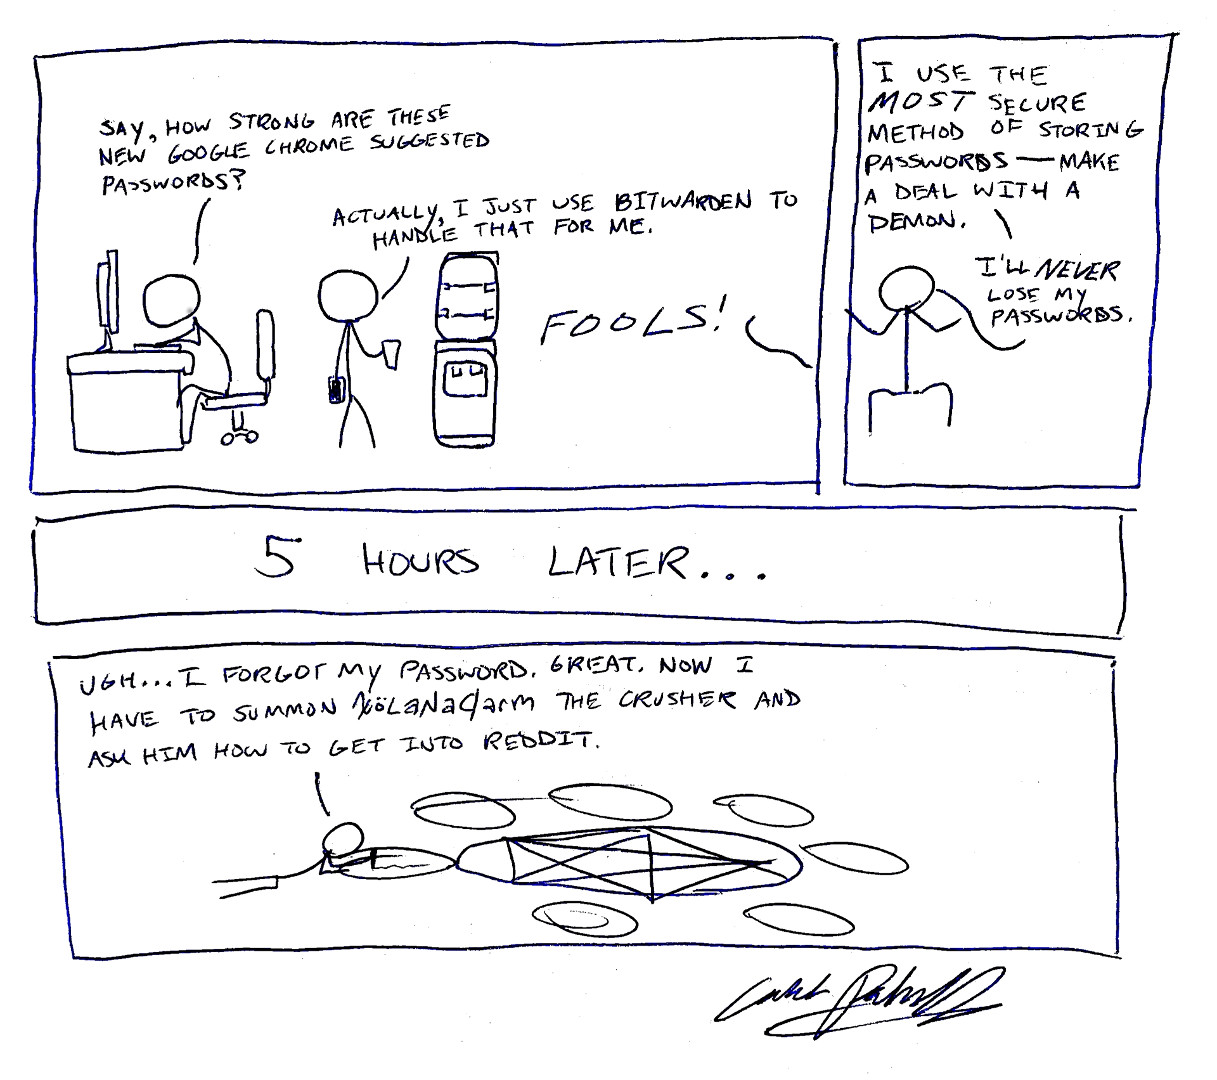 SAY, HOW STRONG ARE THESE
NEW GOOGLE CHROME SUGGESTED
PASSWORDS?
ACTUALLY, I JUST USE BITWARDEN TO
HANDLE THAT FOR ME.
FOOLS!
I USE THE
MOST SECURE
METHOD OF STORING
PASSWORDS — MAKE
A DEAL WITH A
DEMON.
I'LL NEVER
LOSE MY
PASSWORDS.
5 HOURS LATER...
UGH... I FORGOT MY PASSWORD. GREAT. NOW I
HAVE TO SUMMON THE CRUSHER AND
ASK HIM HOW TO GET INTO REDDIT.